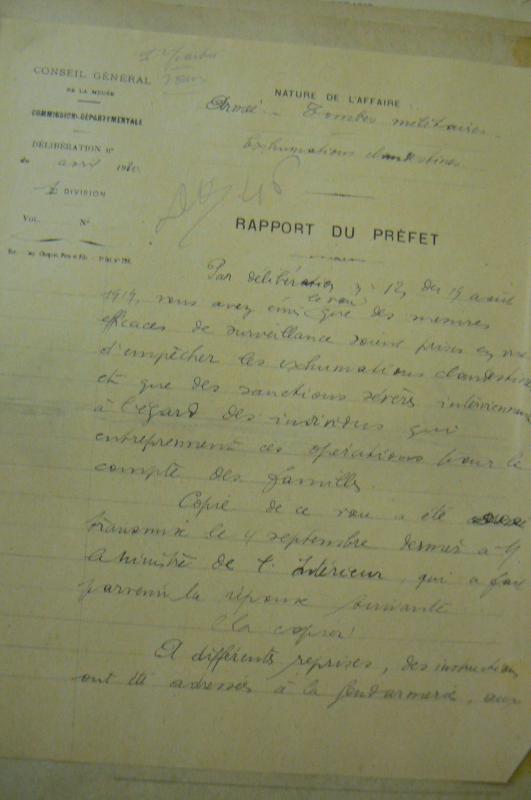 CONSEIL GÉNÉRAL
DE LA MEUSE
COMMISSION DÉPARTEMENTALE
DÉLIBÉRATION N°
du avril 1920
DIVISION
Vol. N°
NATURE DE L'AFFAIRE
Armée - Tombes militaires
Exhumations clandestines
RAPPORT DU PRÉFET
Par délibération n° 12, du 19 août
le vœu
1919, vous avez émis que des mesures
efficaces de surveillance soient prises en vue
d'empêcher les exhumations clandestines
et que des sanctions sévères interviennent
à l'égard des individus qui
entreprennent ces opérations pour le
compte des familles.
Copie de ce vœu a été
transmise le 4 septembre dernier à M.
le Ministre de l'Intérieur, qui a fait
parvenir la réponse suivante
(la copier)
A différentes reprises, des instructions
ont été adressées à la gendarmerie, aux